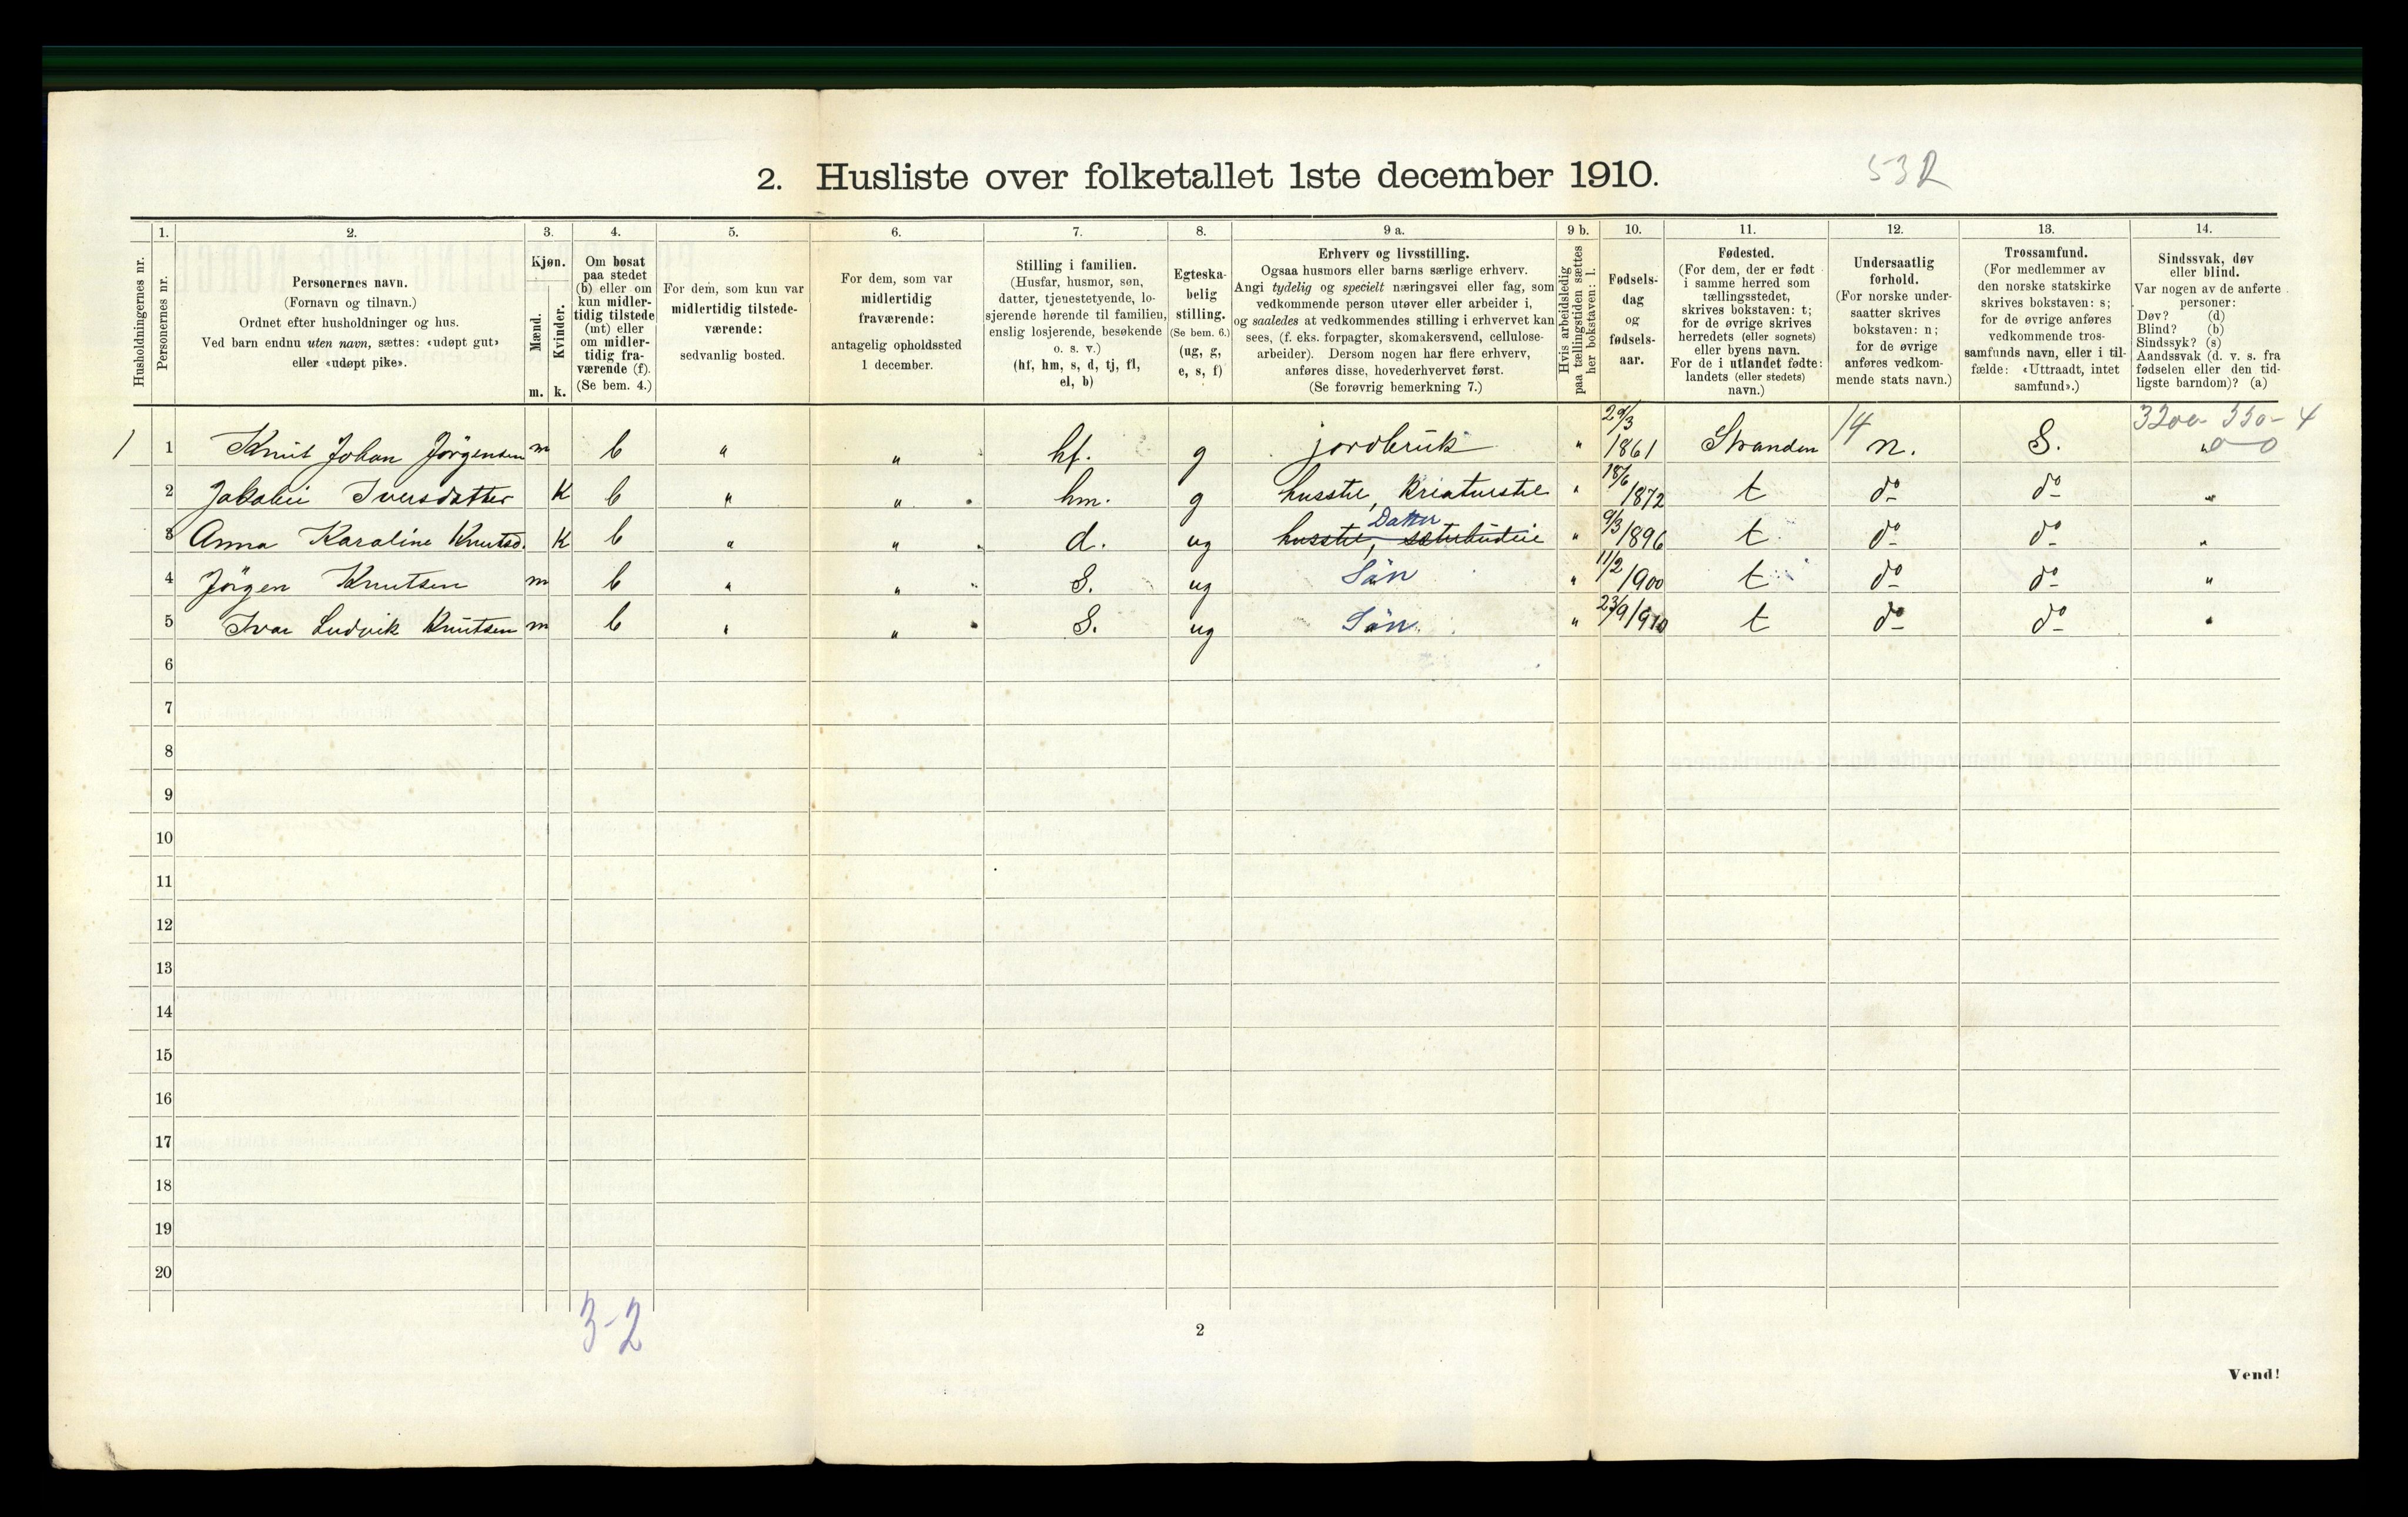 2. Husliste over folketallet 1ste december 1910.
53R
Husholdningernes nr.
1.
Personernes nr.
2.
Personernes navn.
(Fornavn og tilnavn.)
Ordnet efter husholdninger og hus.
Ved barn endnu uten navn, sættes: «udøpt gut»
eller «udøpt pike».
3.
Kjøn.
Mænd.
Kvinder.
m. k.
4.
Om bosat
paa stedet
(b) eller om
kun midler-
tidig tilstede
(mt) eller
om midler-
tidig fra-
værende (f).
(Se bem. 4.)
5.
For dem, som kun var
midlertidig tilstede-
værende:
sedvanlig bosted.
6.
For dem, som var
midlertidig
fraværende:
antagelig opholdssted
1 december.
7.
Stilling i familien.
(Husfar, husmor, søn,
datter, tjenestetyende, lo-
sjerende hørende til familien,
enslig losjerende, besøkende
o. s. v.)
(hf, hm, s, d, tj, fl,
el, b)
8.
Egteska-
belig
stilling.
(Se bem. 6.)
(ug, g,
e, s, f)
9 a.
Erhverv og livsstilling.
Ogsaa husmors eller barns særlige erhverv.
Angi tydelig og specielt næringsvei eller fag, som
vedkommende person utøver eller arbeider i,
og saaledes at vedkommendes stilling i erhvervet kan
sees, (f. eks. forpagter, skomakersvend, cellulose-
arbeider). Dersom nogen har flere erhverv,
anføres disse, hovederhvervet først.
(Se forøvrig bemerkning 7.)
9 b.
Hvis arbeidsledig
paa tællingstiden sættes
her bokstaven: l.
10.
Fødsels-
dag
og
fødsels-
aar.
11.
Fødested.
(For dem, der er født
i samme herred som
tællingsstedet,
skrives bokstaven: t;
for de øvrige skrives
herredets (eller sognets)
eller byens navn.
For de i utlandet fødte:
landets (eller stedets)
navn.)
12.
Undersaatlig
forhold.
(For norske under-
saatter skrives
bokstaven: n;
for de øvrige
anføres vedkom-
mende stats navn.)
13.
Trossamfund.
(For medlemmer av
den norske statskirke
skrives bokstaven: s;
for de øvrige anføres
vedkommende tros-
samfunds navn, eller i til-
fælde: «Uttraadt, intet
samfund».)
14.
Sindssvak, døv
eller blind.
Var nogen av de anførte
personer:
Døv? (d)
Blind? (b)
Sindssyk? (s)
Aandssvak (d. v. s. fra
fødselen eller den tid-
ligste barndom)? (a)
1 1 Knut Johan Jörgensen m b " " hf. g jordbruk " 29/3 1861 Stranden 14 n. S. " 0 0
2 Jakobie Iversdatter K b " " hm. g husstel, kriaturstel " 18/6 1872 t do do "
3 Anna Karoline Knutsd. K b " " d. ug husstel, sæterbudeie Datter " 9/3 1896 t do do "
4 Jörgen Knutsen m b " " S. ug Sön " 11/2 1900 t do do "
5 Ivar Ludvik Knutsen m b " " S. ug Sön " 23/9 1910 t do do "
6
7
8
9
10
11
12
13
14
15
16
17
18
19
20
3-2
2
Vend!